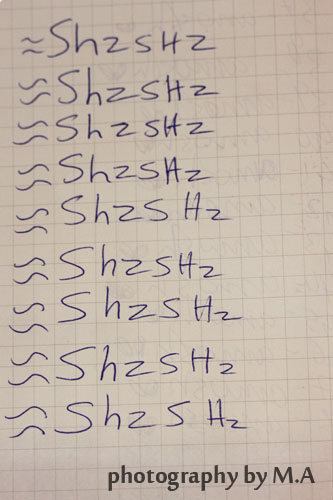 ≈ShzsHz
≈ShzsHz
≈ShzsHz
≈ShzsHz
≈Shzs Hz
≈ShzsHz
≈Shzs Hz
≈Shzs Hz
≈Shzs Hz
photography by M.A